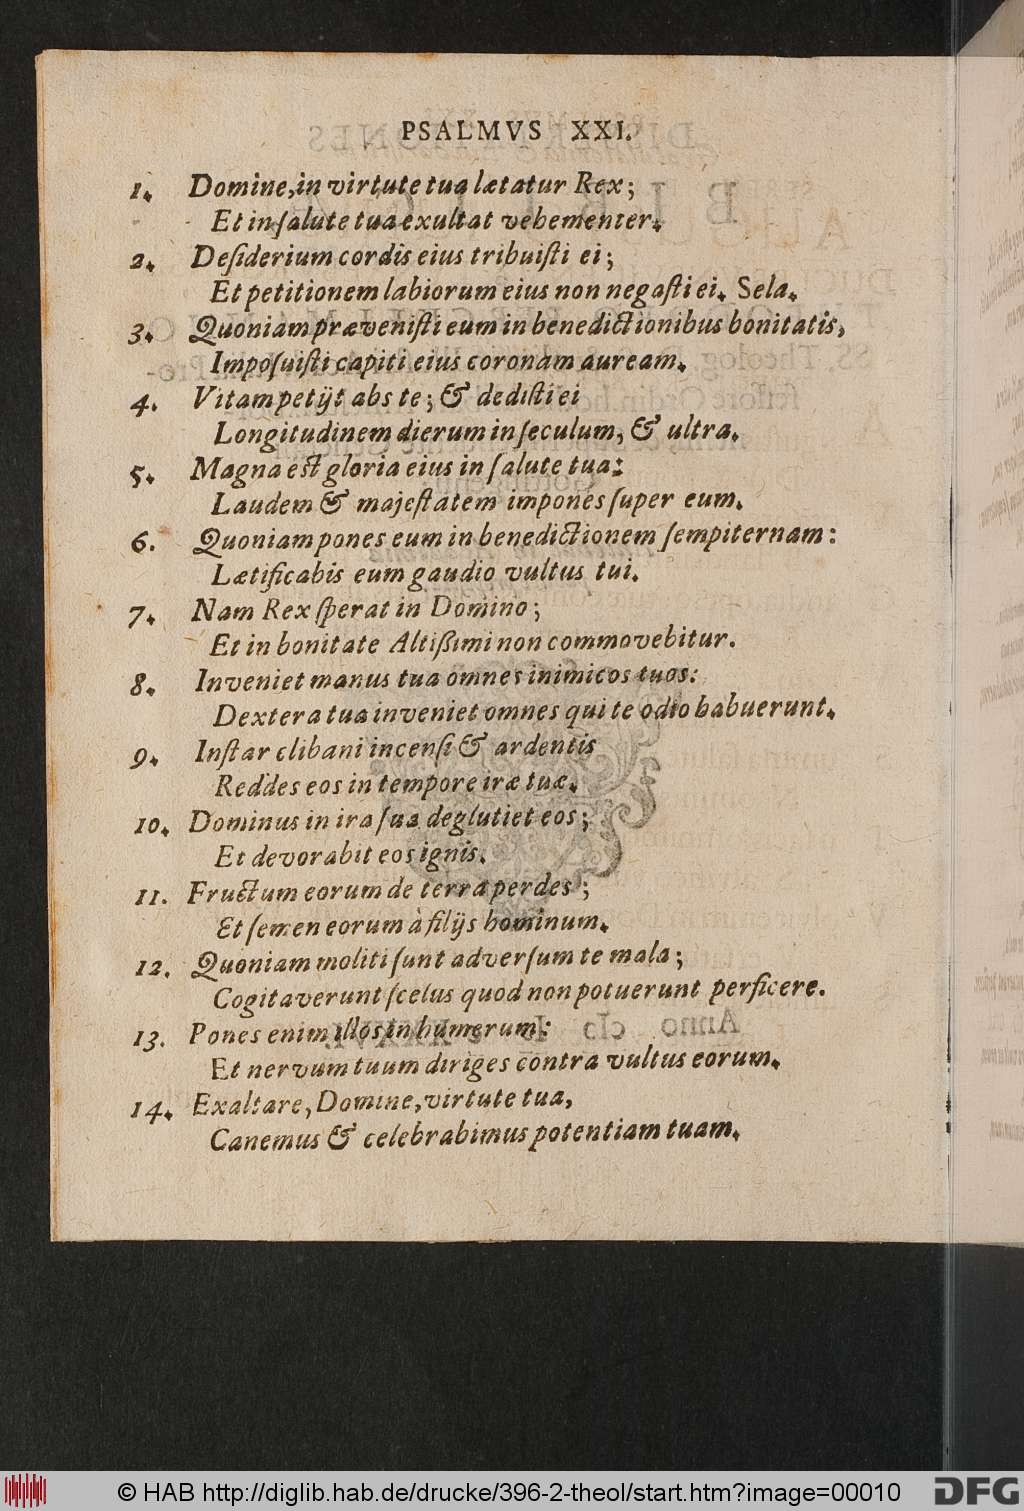 PSALMVS XXI.
1. Domine, in virtute tua lætatur Rex;
Et in ſalute tua exultat vehementer.
2. Deſiderium cordis eius tribuiſti ei;
Et petitionem labiorum eius non negaſti ei. Sela.
3. Quoniam præveniſti eum in benedictionibus bonitatis,
Impoſuiſti capiti eius coronam auream.
4. Vitam petijt abs te; & dediſti ei
Longitudinem dierum in ſeculum, & ultra.
5. Magna est gloria eius in ſalute tua:
Laudem & majeſtatem impones ſuper eum.
6. Quoniam pones eum in benedictionem ſempiternam:
Lætificabis eum gaudio vultus tui.
7. Nam Rex ſperat in Domino;
Et in bonitate Altißimi non commovebitur.
8. Inveniet manus tua omnes inimicos tuos:
Dextera tua inveniet omnes qui te odio habuerunt.
9. Inſtar clibani incenſi & ardentis
Reddes eos in tempore iræ tuæ.
10. Dominus in ira ſua deglutiet eos;
Et devorabit eos ignis.
11. Fructum eorum de terra perdes;
Et ſemen eorum à filijs hominum.
12. Quoniam moliti ſunt adverſum te mala;
Cogitaverunt ſcelus quod non potuerunt perficere.
13. Pones enim illos in humerum:
Et nervum tuum diriges contra vultus eorum.
14. Exaltare, Domine, virtute tua,
Canemus & celebrabimus potentiam tuam.
© HAB http://diglib.hab.de/drucke/396-2-theol/start.htm?image=00010
DFG